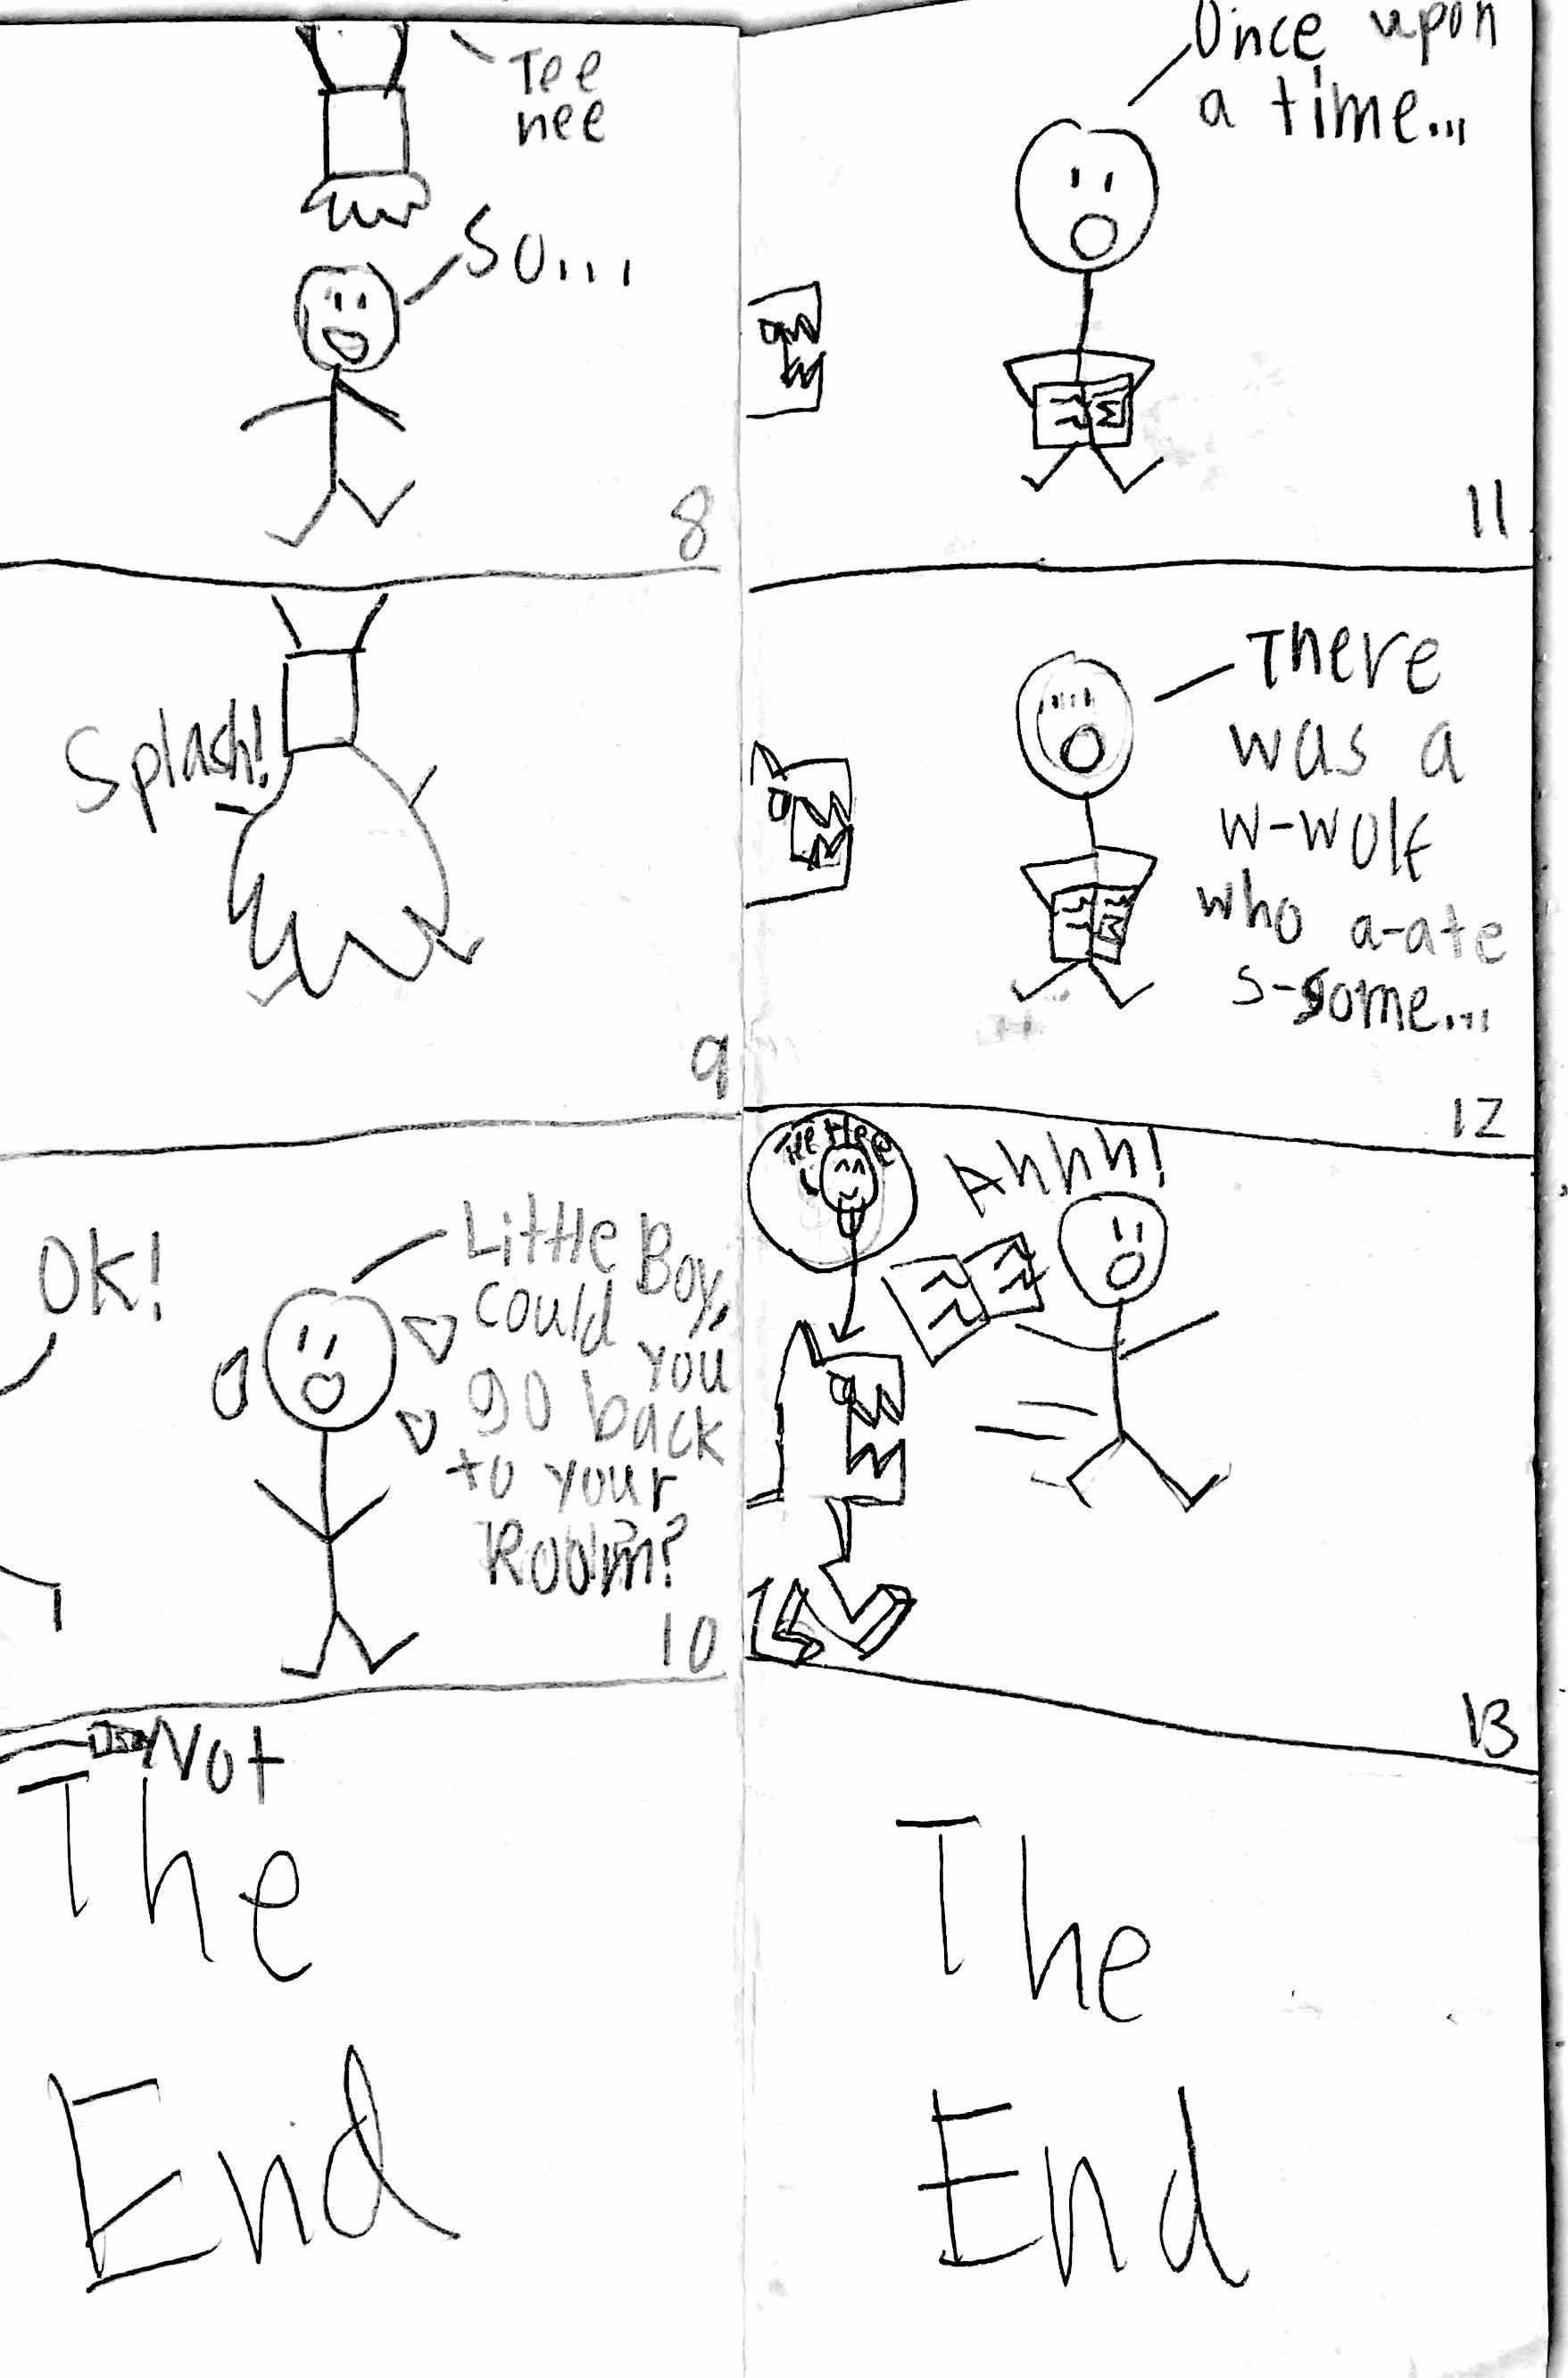 Tee
hee
So...
8
Splash!
9
OK!
Little Boy,
could you
go back
to your
Room?
10
Not
The
End
Once upon
a time...
11
There
was a
w-wolf
who a-ate
s-some...
12
Tee Hee
Ahhh!
13
The
End